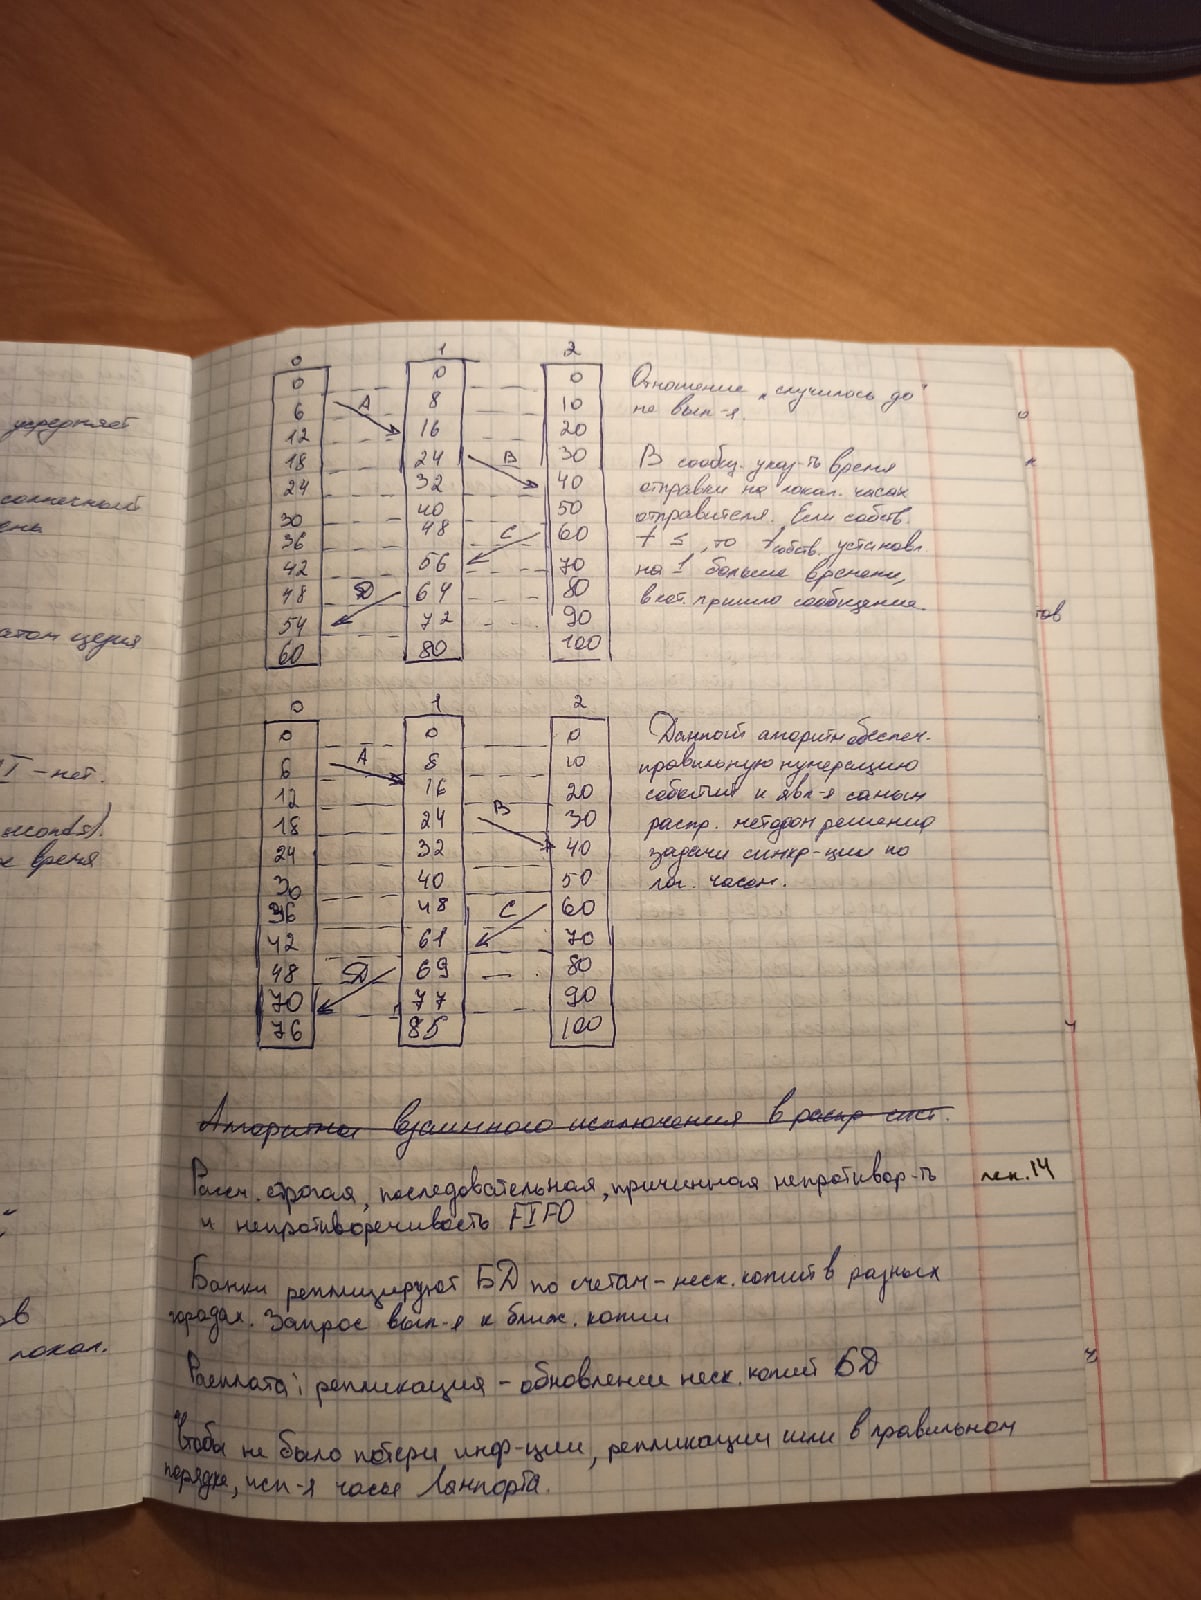 усредняет
солнечный
день
атом цезия
I - нет.
seconds).
е время
ов
локал.
0 1 2
0 0 0
6 A 8 10
12 16 20
18 24 B 30
24 32 40
30 40 50
36 48 C 60
42 56 70
48 D 64 80
54 72 90
60 80 100
Отношение „случилось до"
не вып-я.
В сообщ. указ-ть время
отправки на локал. часах
отправителя. Если собств.
t ≤, то t собств. установл.
на 1 больше времени,
в кот. пришло сообщение.
0 1 2
0 0 0
6 A 8 10
12 16 20
18 24 B 30
24 32 40
30 40 50
36 48 C 60
42 61 70
48 D 69 80
70 77 90
76 85 100
Данный алгоритм обеспеч.
правильную нумерацию
событий и явл-я самым
распр. методом решения
задачи синхр-ции по
лог. часам.
Алгоритмы взаимного исключения в распр сист.
Разл. строгая, последовательная, причинная непротивор-ть лек. 14
и непротиворечивость FIFO
Банки реплицируют БД по счетам - неск. копий в разных
городах. Запрос вып-я к ближ. копии
Расплата: репликация - обновление неск. копий БД
Чтобы не было потери инф-ции, репликации шли в правильном
порядке, исп-я часы Лампорта.
тов